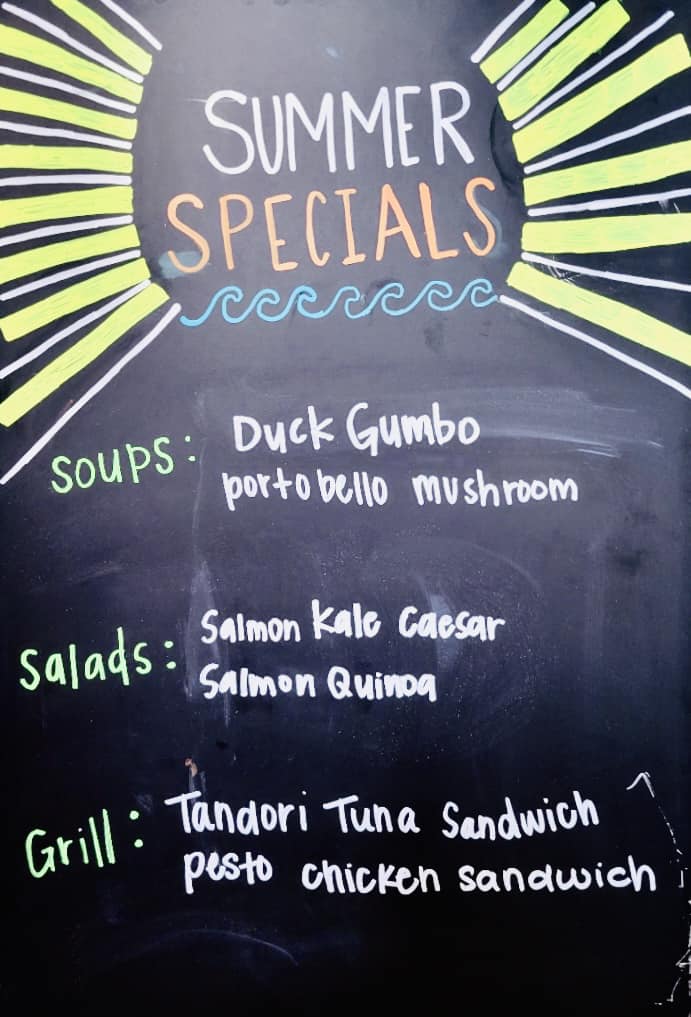 SUMMER
SPECIALS
Soups: Duck Gumbo
portobello mushroom
Salads: Salmon Kale Caesar
Salmon Quinoa
Grill: Tandori Tuna Sandwich
pesto chicken sandwich